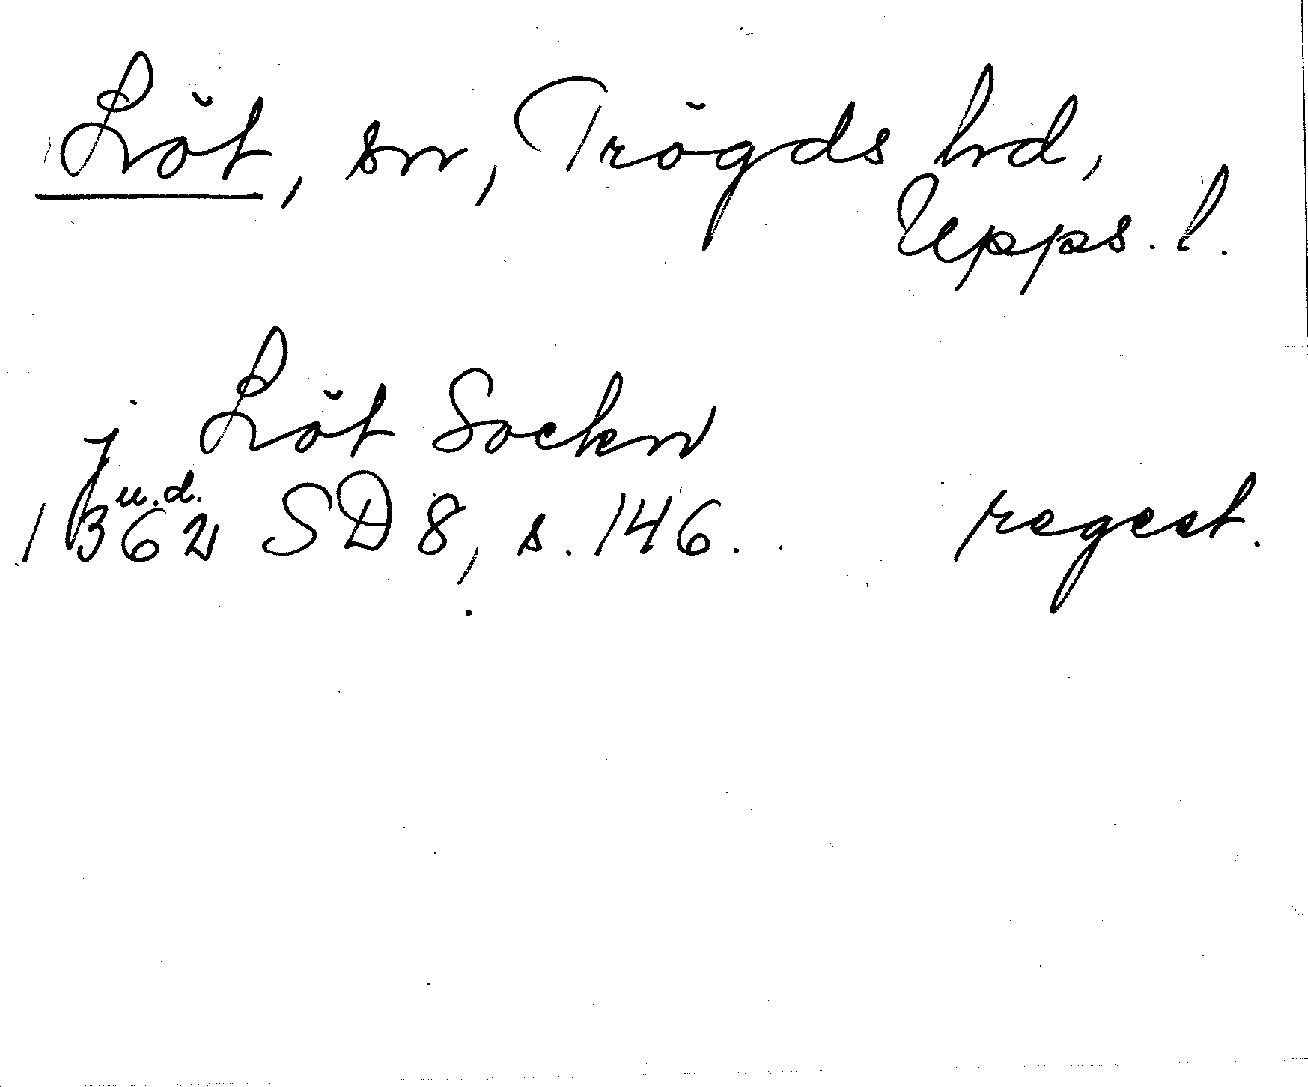 Löt, sn, Trögds hd,
Upps. l.
j Löt Sockn
1362 u.d. SD 8, s. 146. regest.